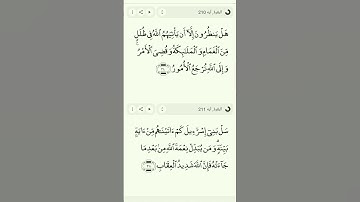 البقرة، آية 210
هَلْ يَنظُرُونَ إِلَّآ أَن يَأْتِيَهُمُ ٱللَّهُ فِى ظُلَلٍ
مِّنَ ٱلْغَمَامِ وَٱلْمَلَـٰٓئِكَةُ وَقُضِىَ ٱلْأَمْرُ ۚ
وَإِلَى ٱللَّهِ تُرْجَعُ ٱلْأُمُورُ
البقرة، آية 211
سَلْ بَنِىٓ إِسْرَٰٓءِيلَ كَمْ ءَاتَيْنَـٰهُم مِّنْ ءَايَةٍۭ
بَيِّنَةٍ ۗ وَمَن يُبَدِّلْ نِعْمَةَ ٱللَّهِ مِنۢ بَعْدِ مَا
جَآءَتْهُ فَإِنَّ ٱللَّهَ شَدِيدُ ٱلْعِقَابِ